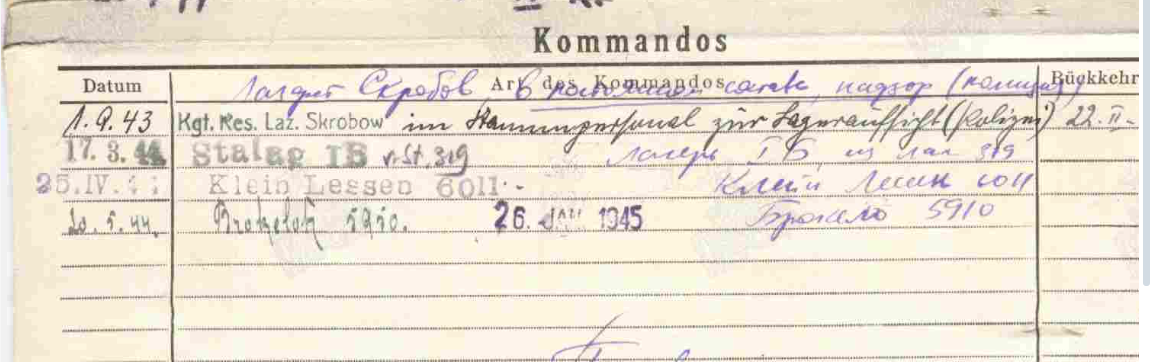 Kommandos
Datum Art des Kommandos Rückkehr
Лазарет Скробов в составе, надзор (полиция)
1.9.43 Kgf. Res. Laz. Skrobow im Stammpersonal zur Lageraufsicht (Polizei) 22.II.
17.3.44 Stalag IB v. St. 319 Лагерь IБ, из лаг 319
25.IV.44 Klein Lessen 6011. Клейн Лесен 6011
20.5.44. 5910. 26. JAN 1945 5910